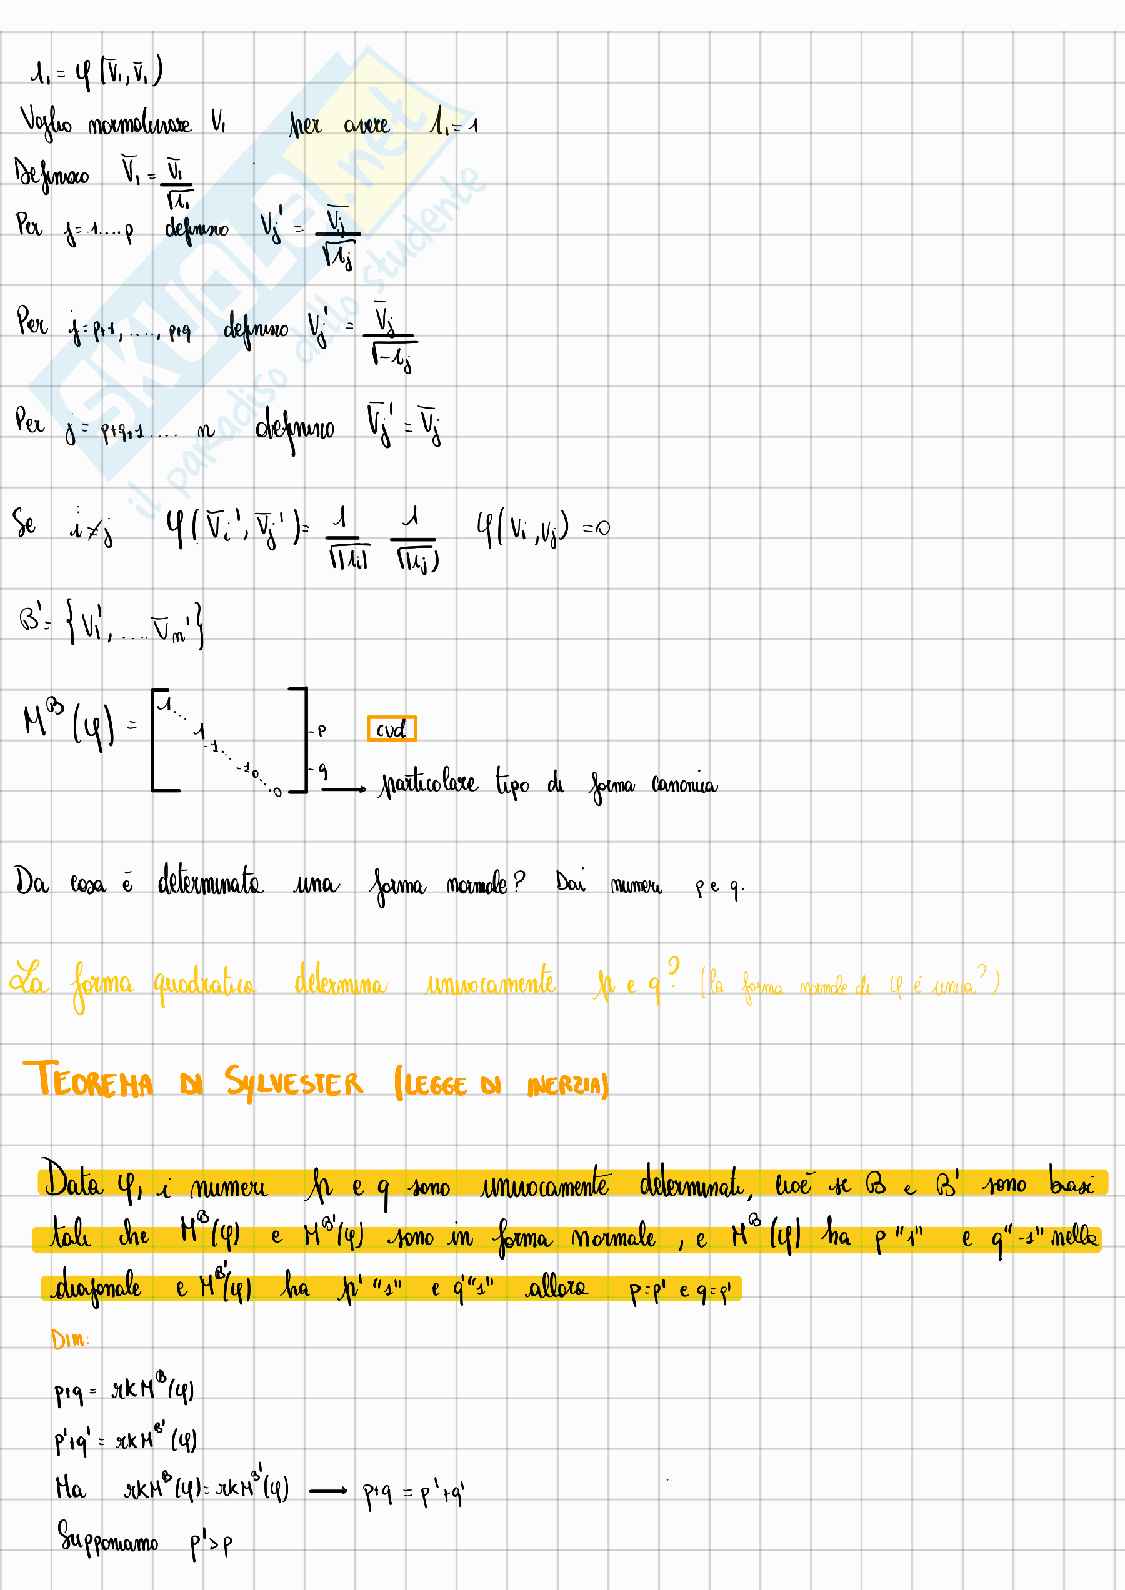 λ₁ = φ(v̄₁, v̄₁)
Voglio normalizzare v₁ per avere λ₁ = 1
Definisco v̄₁ = v̄₁/√λ₁
Per j = 1....p definisco vj' = v̄j/√λj
Per j = p+1, ...., p+q definisco vj' = v̄j/√-λj
Per j = p+q+1.... n definisco v̄j' = v̄j
Se i≠j φ(v̄i', v̄j') = 1/√|λi| 1/√|λj| φ(vi, vj) = 0
B' = {v₁', .... v̄n'}
M^B(φ) = [1 ... 1 -1 ... -1 0 ... 0] - p - q cvd
→ particolare tipo di forma canonica
Da cosa è determinata una forma normale? Dai numeri p e q.
La forma quadratica determina univocamente p e q? (la forma normale di φ è unica?)
TEOREMA DI SYLVESTER (LEGGE DI INERZIA)
Data φ, i numeri p e q sono univocamente determinati, cioè se B e B' sono basi
tali che M^B(φ) e M^B'(φ) sono in forma normale, e M^B(φ) ha p "1" e q "-1" nella
diagonale e M^B'(φ) ha p' "1" e q' "1" allora p=p' e q=q'
Dim:
p+q = rk M^B(φ)
p'+q' = rk M^B'(φ)
Ma rk M^B(φ) = rk M^B'(φ) → p+q = p'+q'
Supponiamo p' > p
SKUOLA.net
il paradiso dello studente